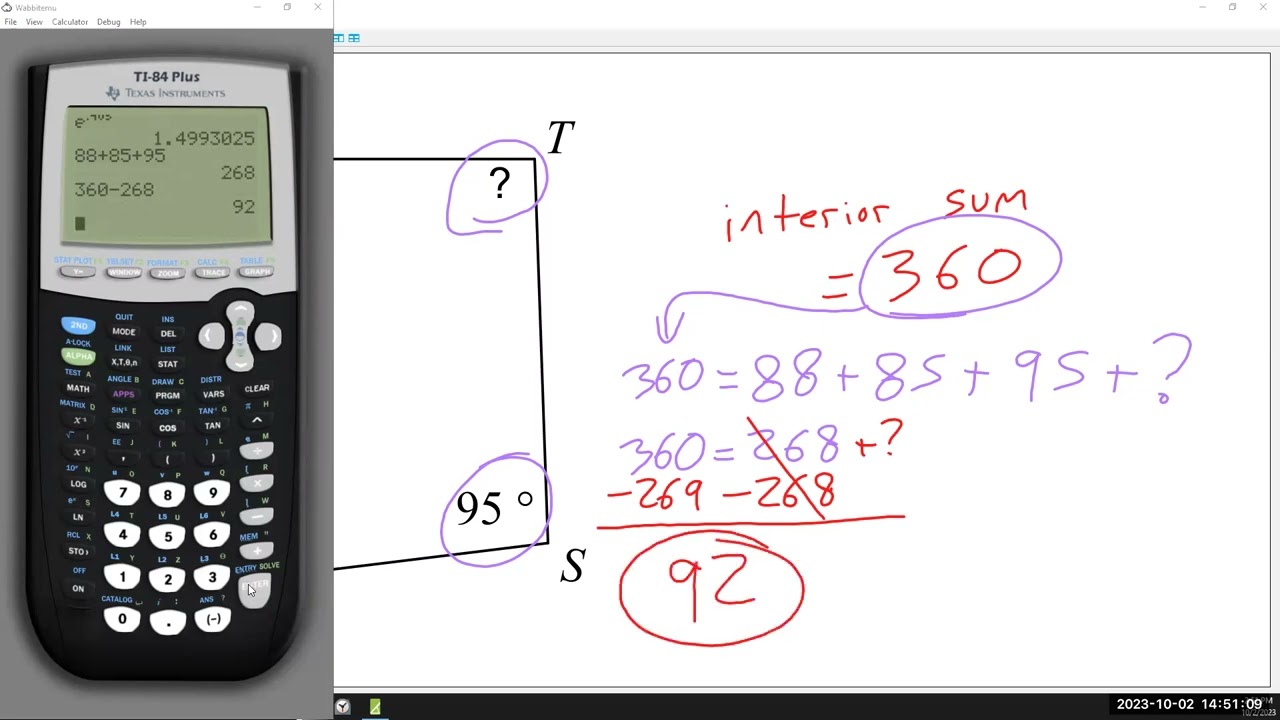 Wabbitemu
File View Calculator Debug Help
TI-84 Plus
TEXAS INSTRUMENTS
1.4993025
88+85+95
268
360-268
92
STAT PLOT F1 TBLSET F2 FORMAT F3 CALC F4 TABLE F5
Y= WINDOW ZOOM TRACE GRAPH
QUIT INS
2ND MODE DEL
A-LOCK LINK LIST
ALPHA X,T,θ,n STAT
TEST A ANGLE B DRAW C DISTR
MATH APPS PRGM VARS CLEAR
MATRIX D SIN⁻¹ E COS⁻¹ F TAN⁻¹ G π H
X⁻¹ SIN COS TAN ^
√ I EE J { K } L e M
X² , ( ) ÷
10ˣ N u O v P w Q [ R
LOG 7 8 9 ×
eˣ S L4 T L5 U L6 V ] W
LN 4 5 6 −
RCL X L1 Y L2 Z L3 θ MEM "
STO› 1 2 3 +
OFF CATALOG i : ANS ? ENTRY SOLVE
ON 0 . (-) ENTER
T
?
95 °
S
interior sum
= 360
360 = 88 + 85 + 95 + ?
360 = 268 + ?
-269 -268
92
2023-10-02 14:51:09